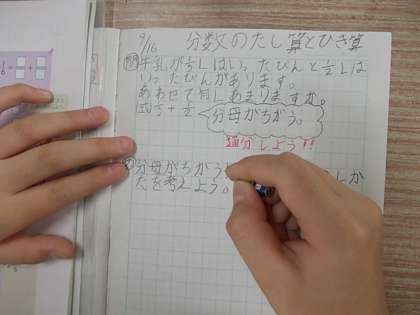 9/16 分数のたし算とひき算
問 牛乳が1/3Lはいったびんと1/2Lは
いったびんがあります。
あわせて何Lありますか。
式 1/3+1/2 分母がちがう。
通分しよう!!
分母がちがう しか
たを考えよう。